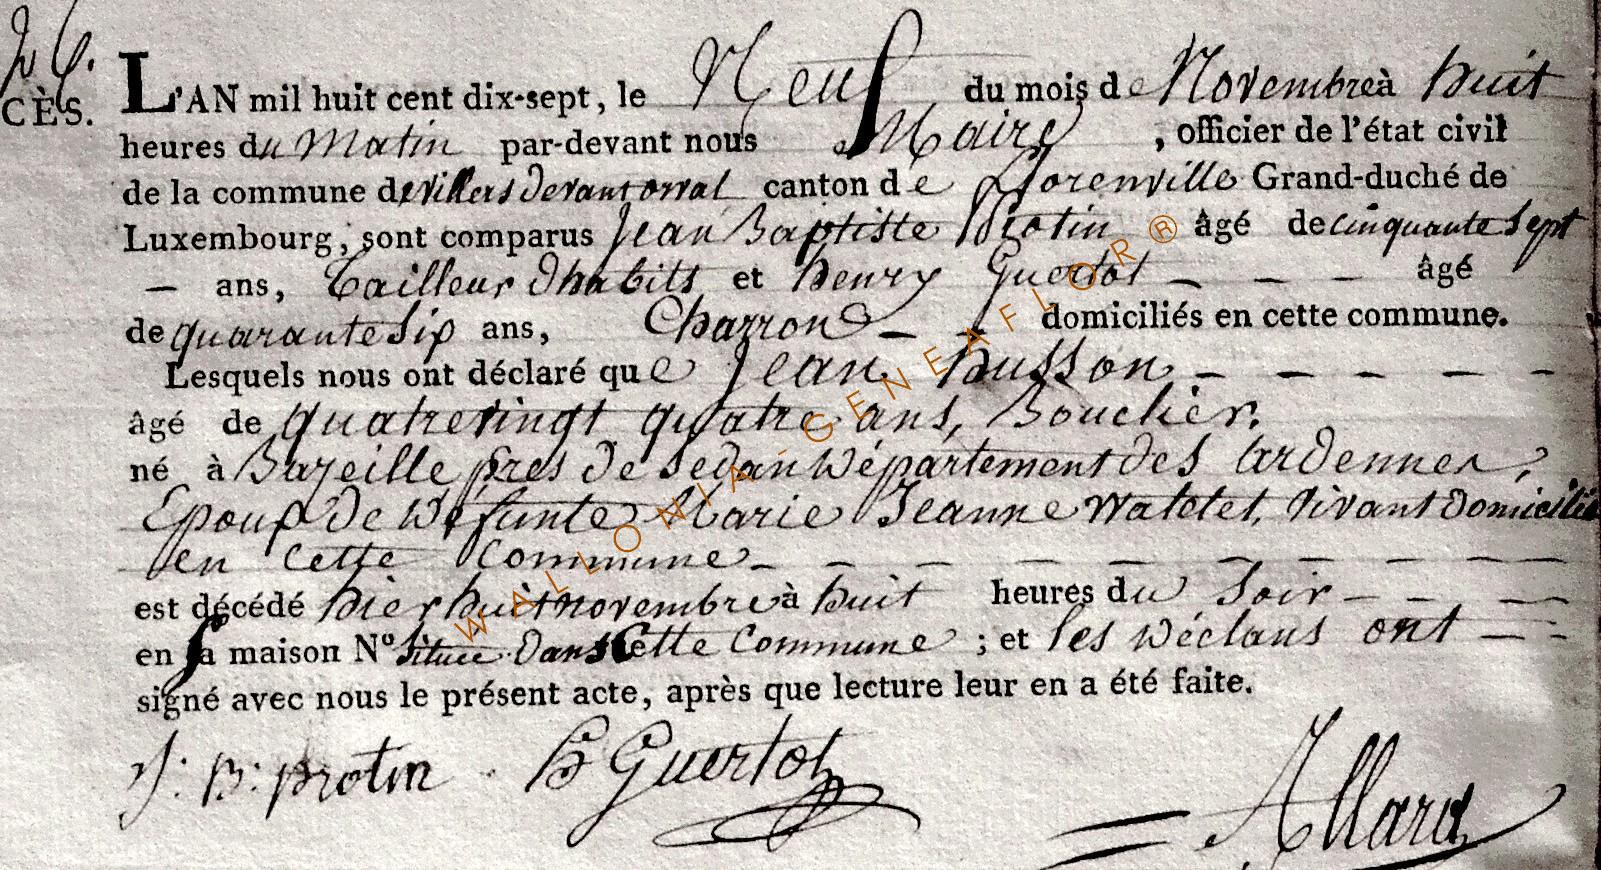 CÈS.
L'AN mil huit cent dix-sept, le Neuf du mois de Novembre à huit
heures du Matin par-devant nous Maire, officier de l'état civil
de la commune de villers devant orval canton de florenville Grand-duché de
Luxembourg, sont comparus Jean Baptiste Protin âgé de cinquante Sept
— ans, Tailleur d'habits et henry Guertot — — — âgé
de quarante Six ans, Charron — — domiciliés en cette commune.
Lesquels nous ont déclaré que Jean husson. — — — — —
âgé de quatrevingt quatre ans, Boucher.
né à Bazeille près de Sedan Département des Ardennes,
Epoux de Défunte Marie Jeanne Watelet, vivant Domicilié
en cette Commune — — — — — — — —
est décédé hier huit novembre à huit heures du Soir — — —
en sa maison N° située dans Cette Commune ; et les Déclans ont — —
signé avec nous le présent acte, après que lecture leur en a été faite.
J: B: protin h Guertot
Allard
WALLONIA-GENEAFLOR®